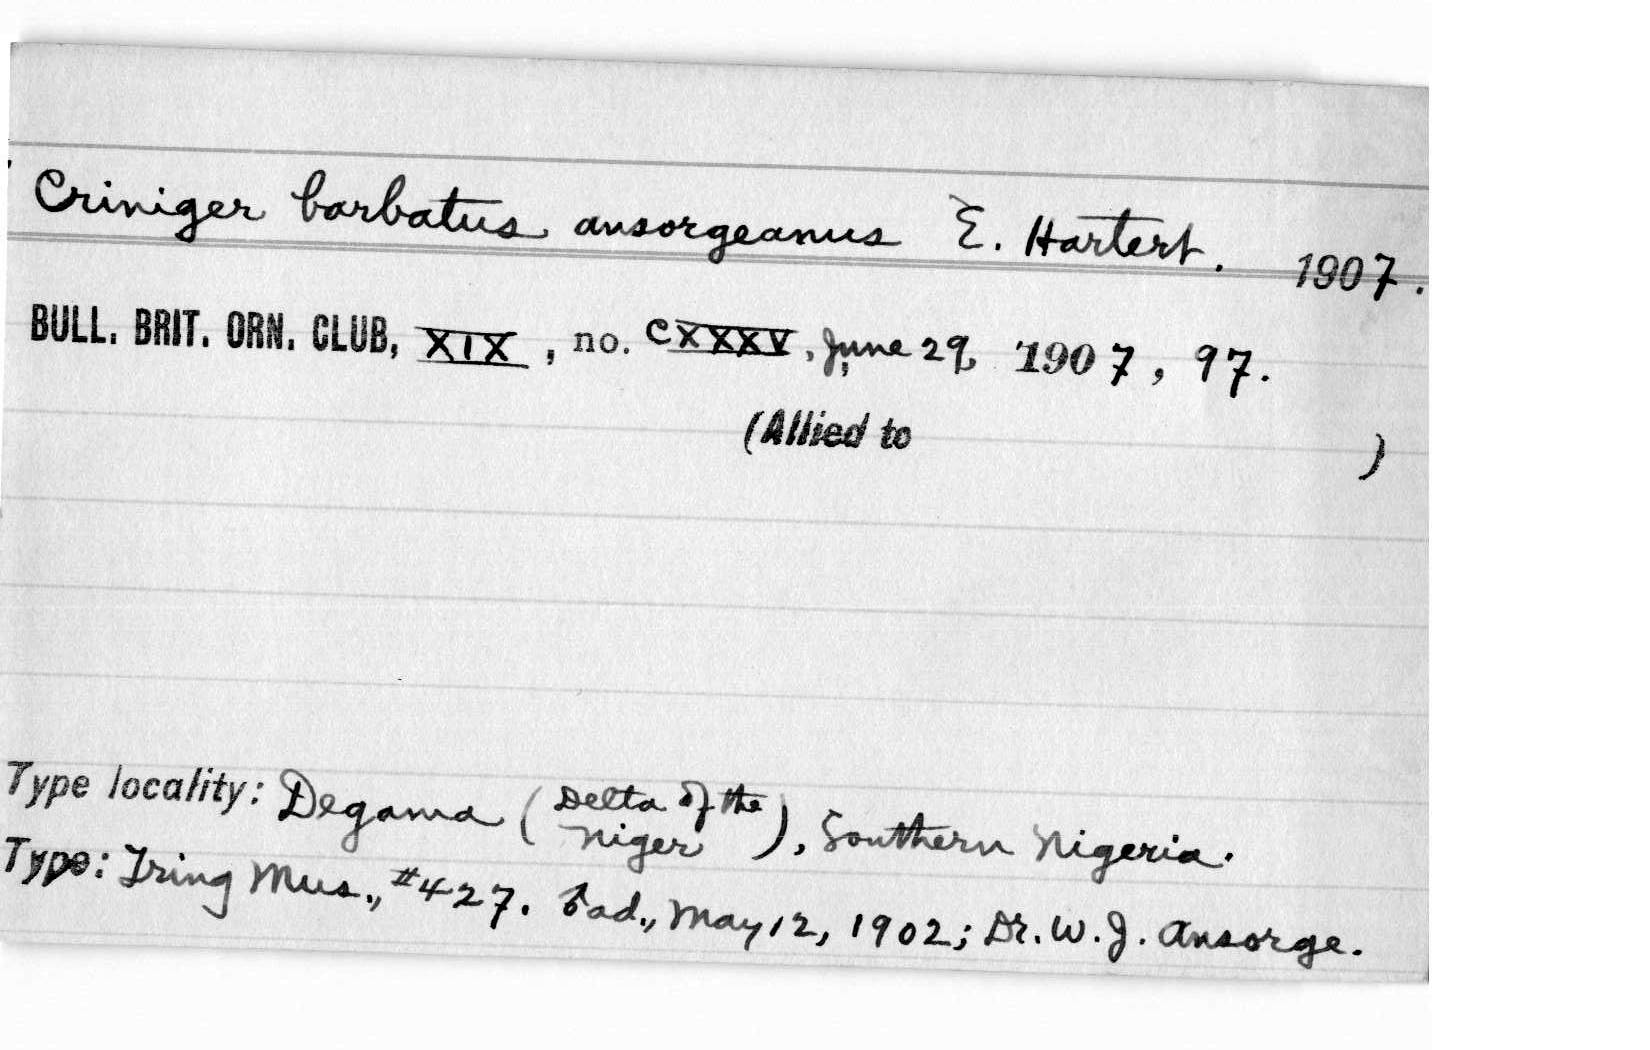 Criniger barbatus ansorgeanus E. Hartert. 1907.
BULL. BRIT. ORN. CLUB, XIX, no. CXXXV, June 29, 1907, 97.
(Allied to )
Type locality: Degama (Delta of the Niger), Southern Nigeria.
Type: Tring Mus., #427. ♂ ad., May 12, 1902; Dr. W. J. Ansorge.